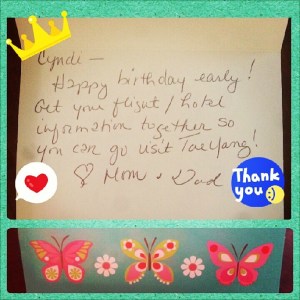 Cyndi —
Happy birthday early!
Get your flight / hotel
information together so
you can go visit TaeYang!
♡ Mom & Dad
Thank
you